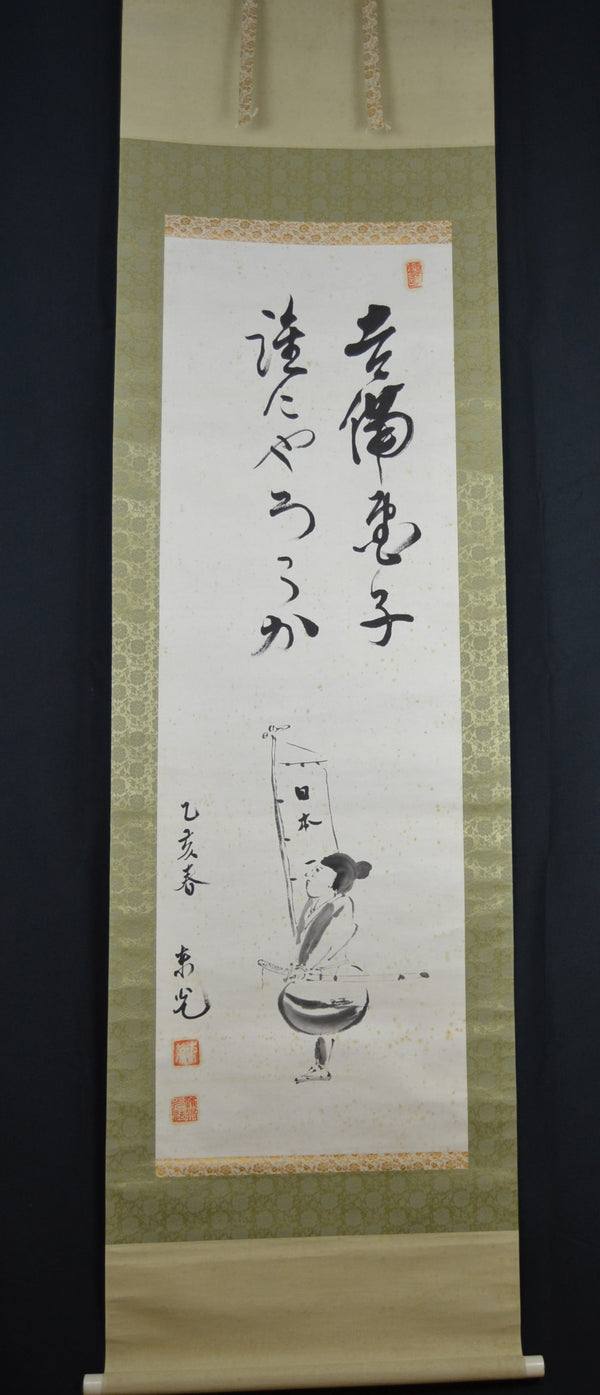 吉備団子
誰にやろうか
日本
乙亥春
東光